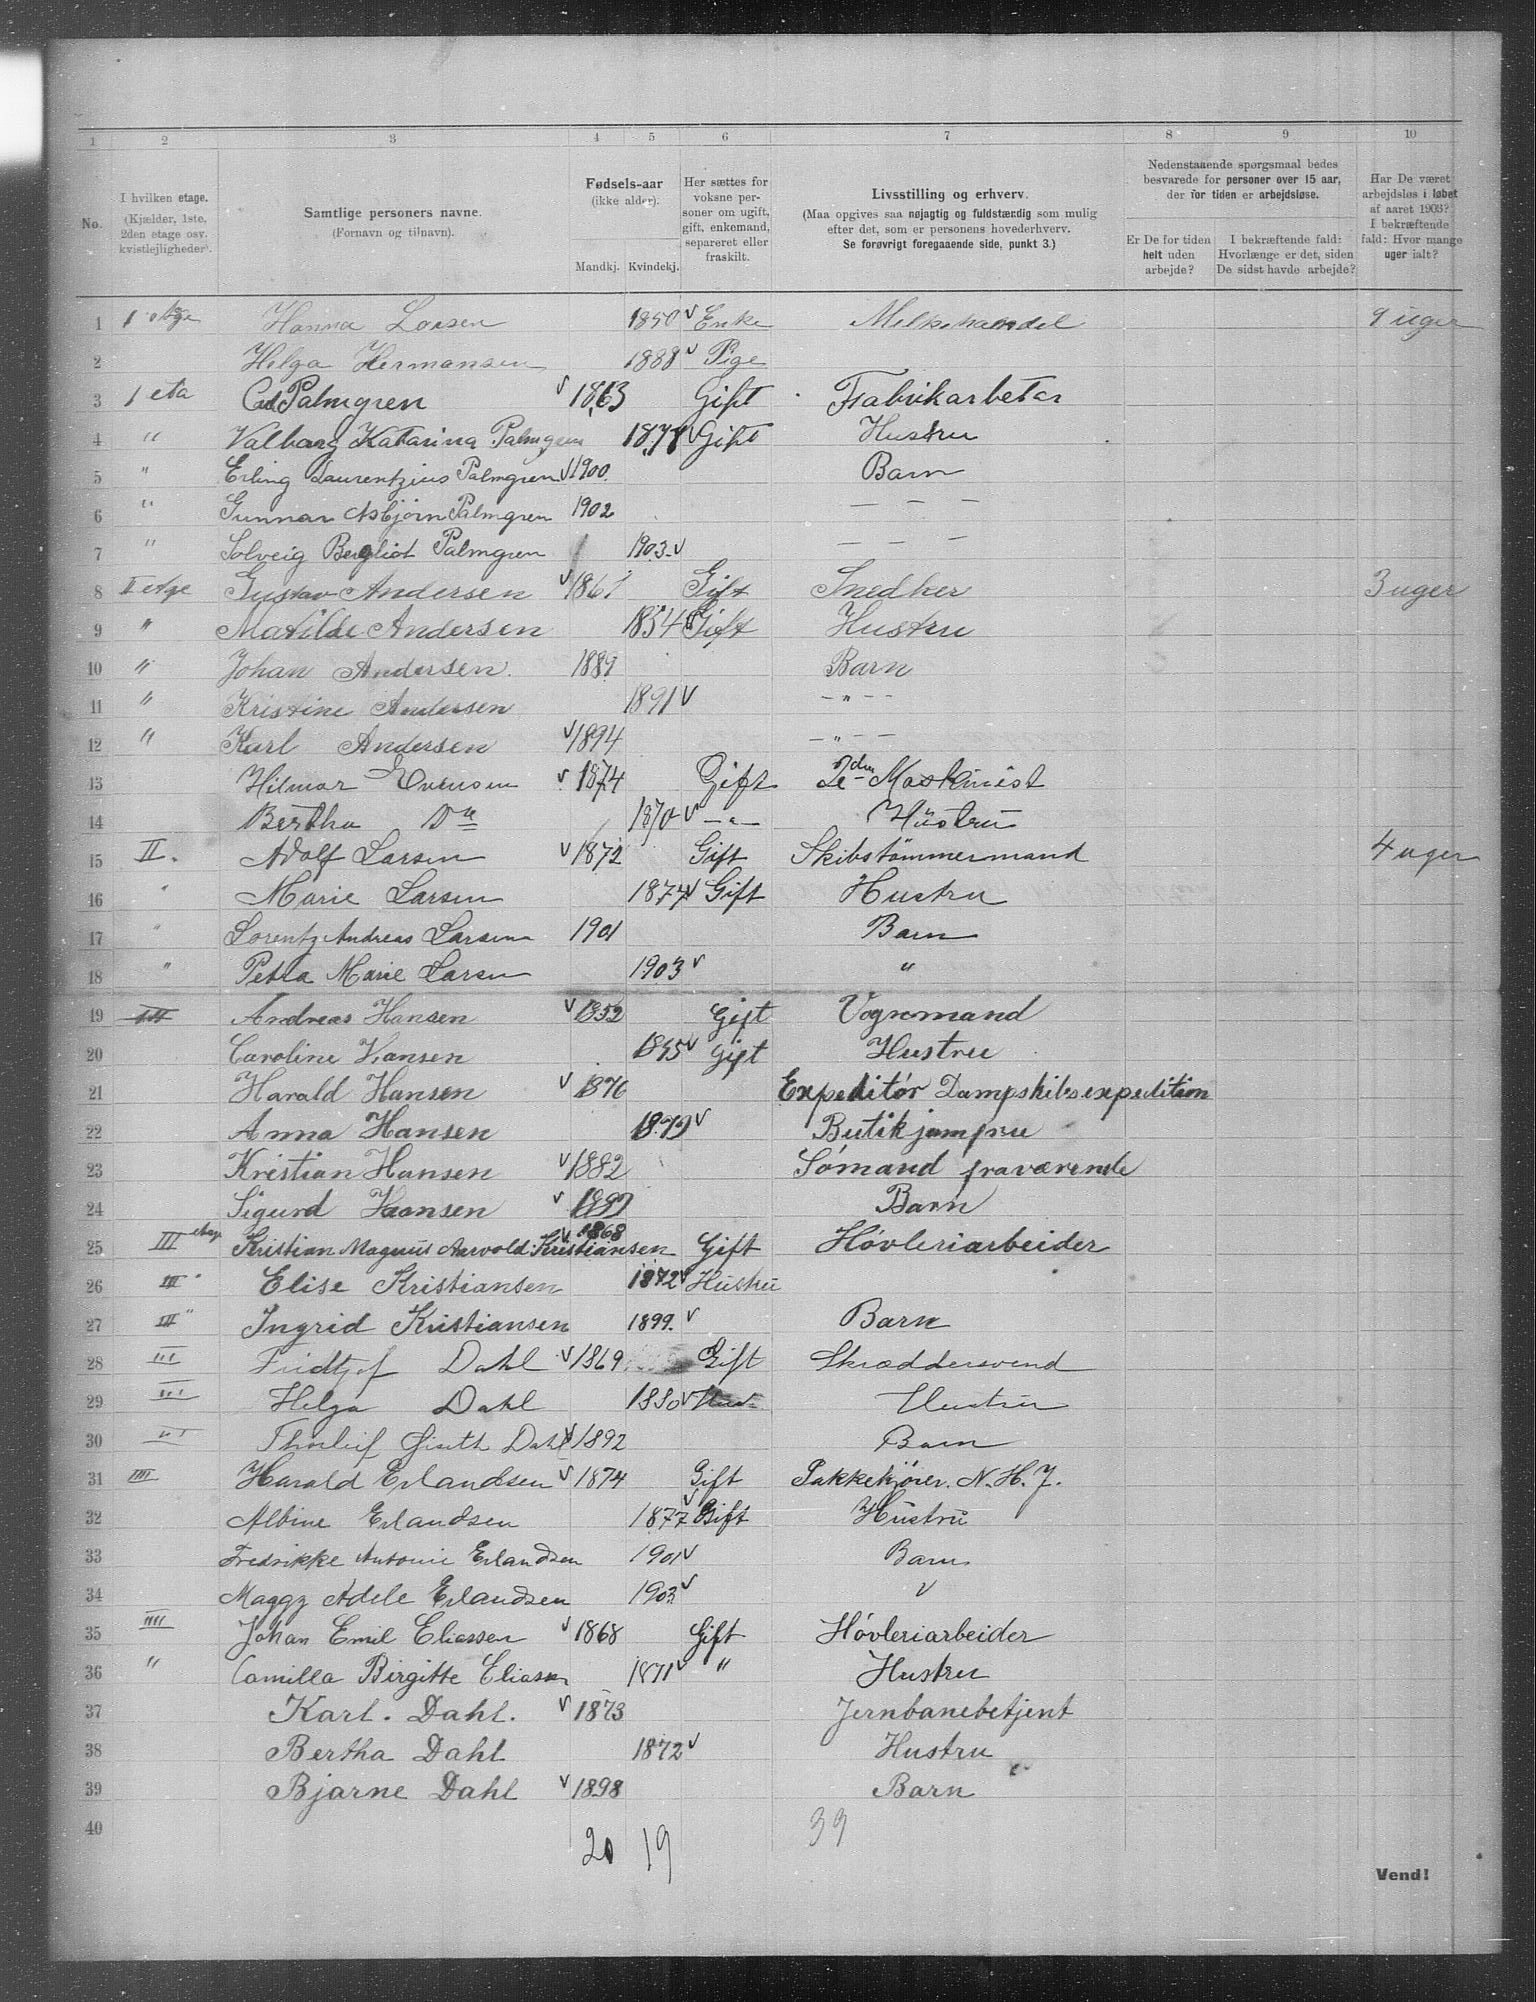 1 2 3 4 5 6 7 8 9 10
No. I hvilken etage. (Kjælder, 1ste, 2den etage osv. kvistlejligheder). Samtlige personers navne. (Fornavn og tilnavn). Fødsels-aar (ikke alder). Mandkj. Kvindekj. Her sættes for voksne personer om ugift, gift, enkemand, separeret eller fraskilt. Livsstilling og erhverv. (Maa opgives saa nøjagtig og fuldstændig som mulig efter det, som er personens hovederhverv. Se forøvrigt foregaaende side, punkt 3.) Nedenstaaende spørgsmaal bedes besvarede for personer over 15 aar, der for tiden er arbejdsløse. Er De for tiden helt uden arbejde? I bekræftende fald: Hvorlænge er det, siden De sidst havde arbejde? Har De været arbejdsløs i løbet af aaret 1903? I bekræftende fald: Hvor mange uger ialt?
1 1 etage Hanna Larsen 1850 v Enke Melkehandel 9 uger
2 Helga Hermansen 1888 v Pige
3 1 eta Carl Palmgren v 1863 Gift Fabrikarbeter
4 " Valborg Katarina Palmgren 1878 v Gift Hustru
5 " Erling Laurentzius Palmgren v 1900. Barn
6 " Gunnar Asbjørn Palmgren 1902 — — —
7 " Solveig Bergliot Palmgren 1903. v — — —
8 II etage Gustav Andersen v 1861 Gift Snedker 3 uger
9 " Matilde Andersen 1854 v Gift Hustru
10 " Johan Andersen. 1889 Barn
11 " Kristine Andersen 1891 v — " — —
12 " Karl Andersen v 1894 — " — —
13 Hilmar Evensen v 1874 Gift 2den Maskinist
14 Bertha Do 1870 v — " — Hustru
15 II. Adolf Larsen v 1872 Gift Skibstømmermand 4 uger
16 " Marie Larsen 1874 v Gift Hustru
17 " Lorentz Andreas Larsen 1901 Barn
18 " Petra Marie Larsen 1903 v "
19 III Andreas Hansen v 1852 Gift Vognmand
20 Caroline Hansen 1855 v Gift Hustru
21 Harald Hansen v 1876 Expeditør Dampskibsexpedition
22 Anna Hansen 1879 v Butikjomfru
23 Kristian Hansen v 1882 Sømand fraværende
24 Sigurd Hansen v 1892 Barn
25 III etag Kristian Magnus Aarvold Kristiansen v 1868 Gift Høvleriarbeider
26 III " Elise Kristiansen 1872 v Hustru
27 III " Ingrid Kristiansen 1899. v Barn
28 III Fridtjof Dahl v 1869 Gift Skræddersvend
29 III Helga Dahl 1880 v Hus. Hustru
30 III Thorleif Dahl v 1892 Barn
31 IIII Harald Erlandsen v 1874 Gift Pakkekjører. N. H. J.
32 Albine Erlandsen 1877 v Gift Hustru
33 Fredrikke Antonie Erlandsen 1901 v Barn
34 Maggy Adele Erlandsen 1903 v "
35 IIII Johan Emil Eliassen v 1868 Gift Høvleriarbeider
36 " Camilla Birgitte Eliassen 1871 v " Hustru
37 Karl. Dahl. v 1873 Jernbanebetjent
38 Bertha Dahl 1872 v Hustru
39 Bjarne Dahl v 1898 Barn
40
20 19 39
Vend!